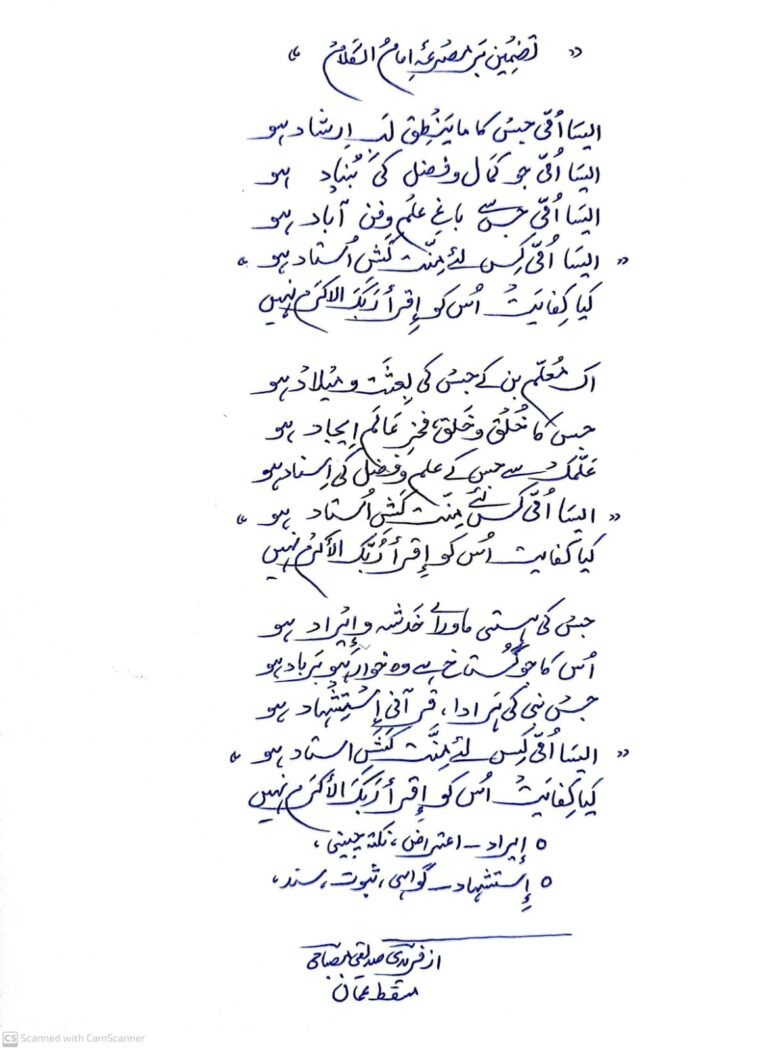 " تضمین بر مصرعۂ امام الکلام "
ایسا اُمّی جس کا ما یَنْطِق لب اِرشاد ہو
ایسا اُمّی جو کمال و فضل کی بُنیاد ہو
ایسا اُمّی جس سے باغِ علم و فن آباد ہو
" ایسا اُمّی کِس لئے مِنّت کشِ اُستاد ہو "
کیا کِفایت اُس کو اِقرأ رَبُّکَ الاکرم نہیں
اک مُعلّم بن کے جس کی بِعثت و میلاد ہو
جس کا خُلُق و خَلق، فخرِ عالَمِ اِیجاد ہو
عَلَّمَکَ سے جس کے علم و فضل کی اِسناد ہو
" ایسا اُمّی کس لئے مِنّت کش اُستاد ہو "
کیا کفایت اُس کو اِقرأ رَبُّکَ الأکرم نہیں
جس کی ہستی ماورائے خَدشہ و اِیْراد ہو
اُس کا جو گُستاخ ہے وہ خوار ہو بَرباد ہو
جس نبی کی ہر ادا، قرآنی اِسْتِشْہاد ہو
" ایسا اُمّی کِس لئے مِنَّت کَشِ استاد ہو "
کیا کِفایت اُس کو اِقرأ رَبُّکَ الأکرم نہیں
o اِیراد ــ اعتراض، نکتہ چینی،
o اِستشہاد ــ گواہی، ثبوت، سند،
از فریدی صدیقی مصباحی
مسقط عمان
CS Scanned with CamScanner